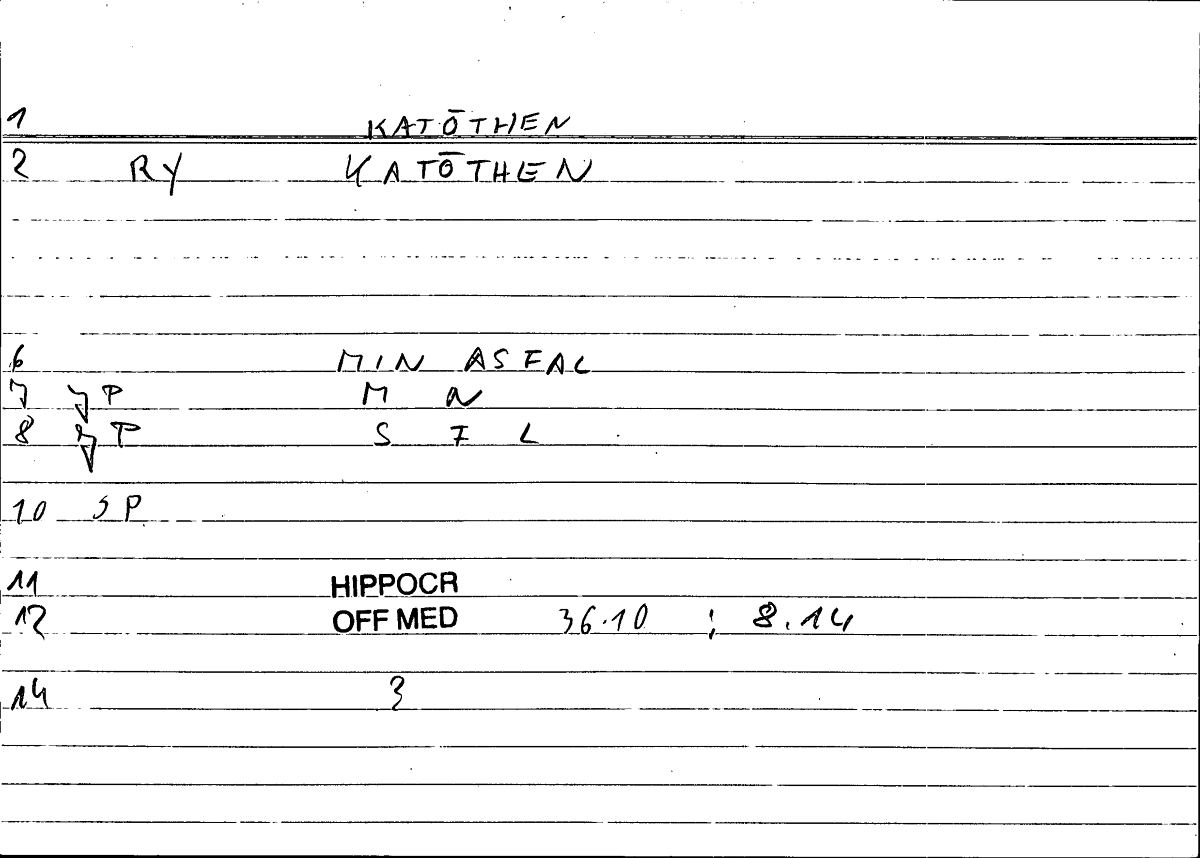 1 KATŌTHEN
2 RY KATŌTHEN
6 MIN ASFAL
7 P M N
8 P S F L
10 SP
11 HIPPOCR
12 OFF MED 36.10 ; 8.14
14 3